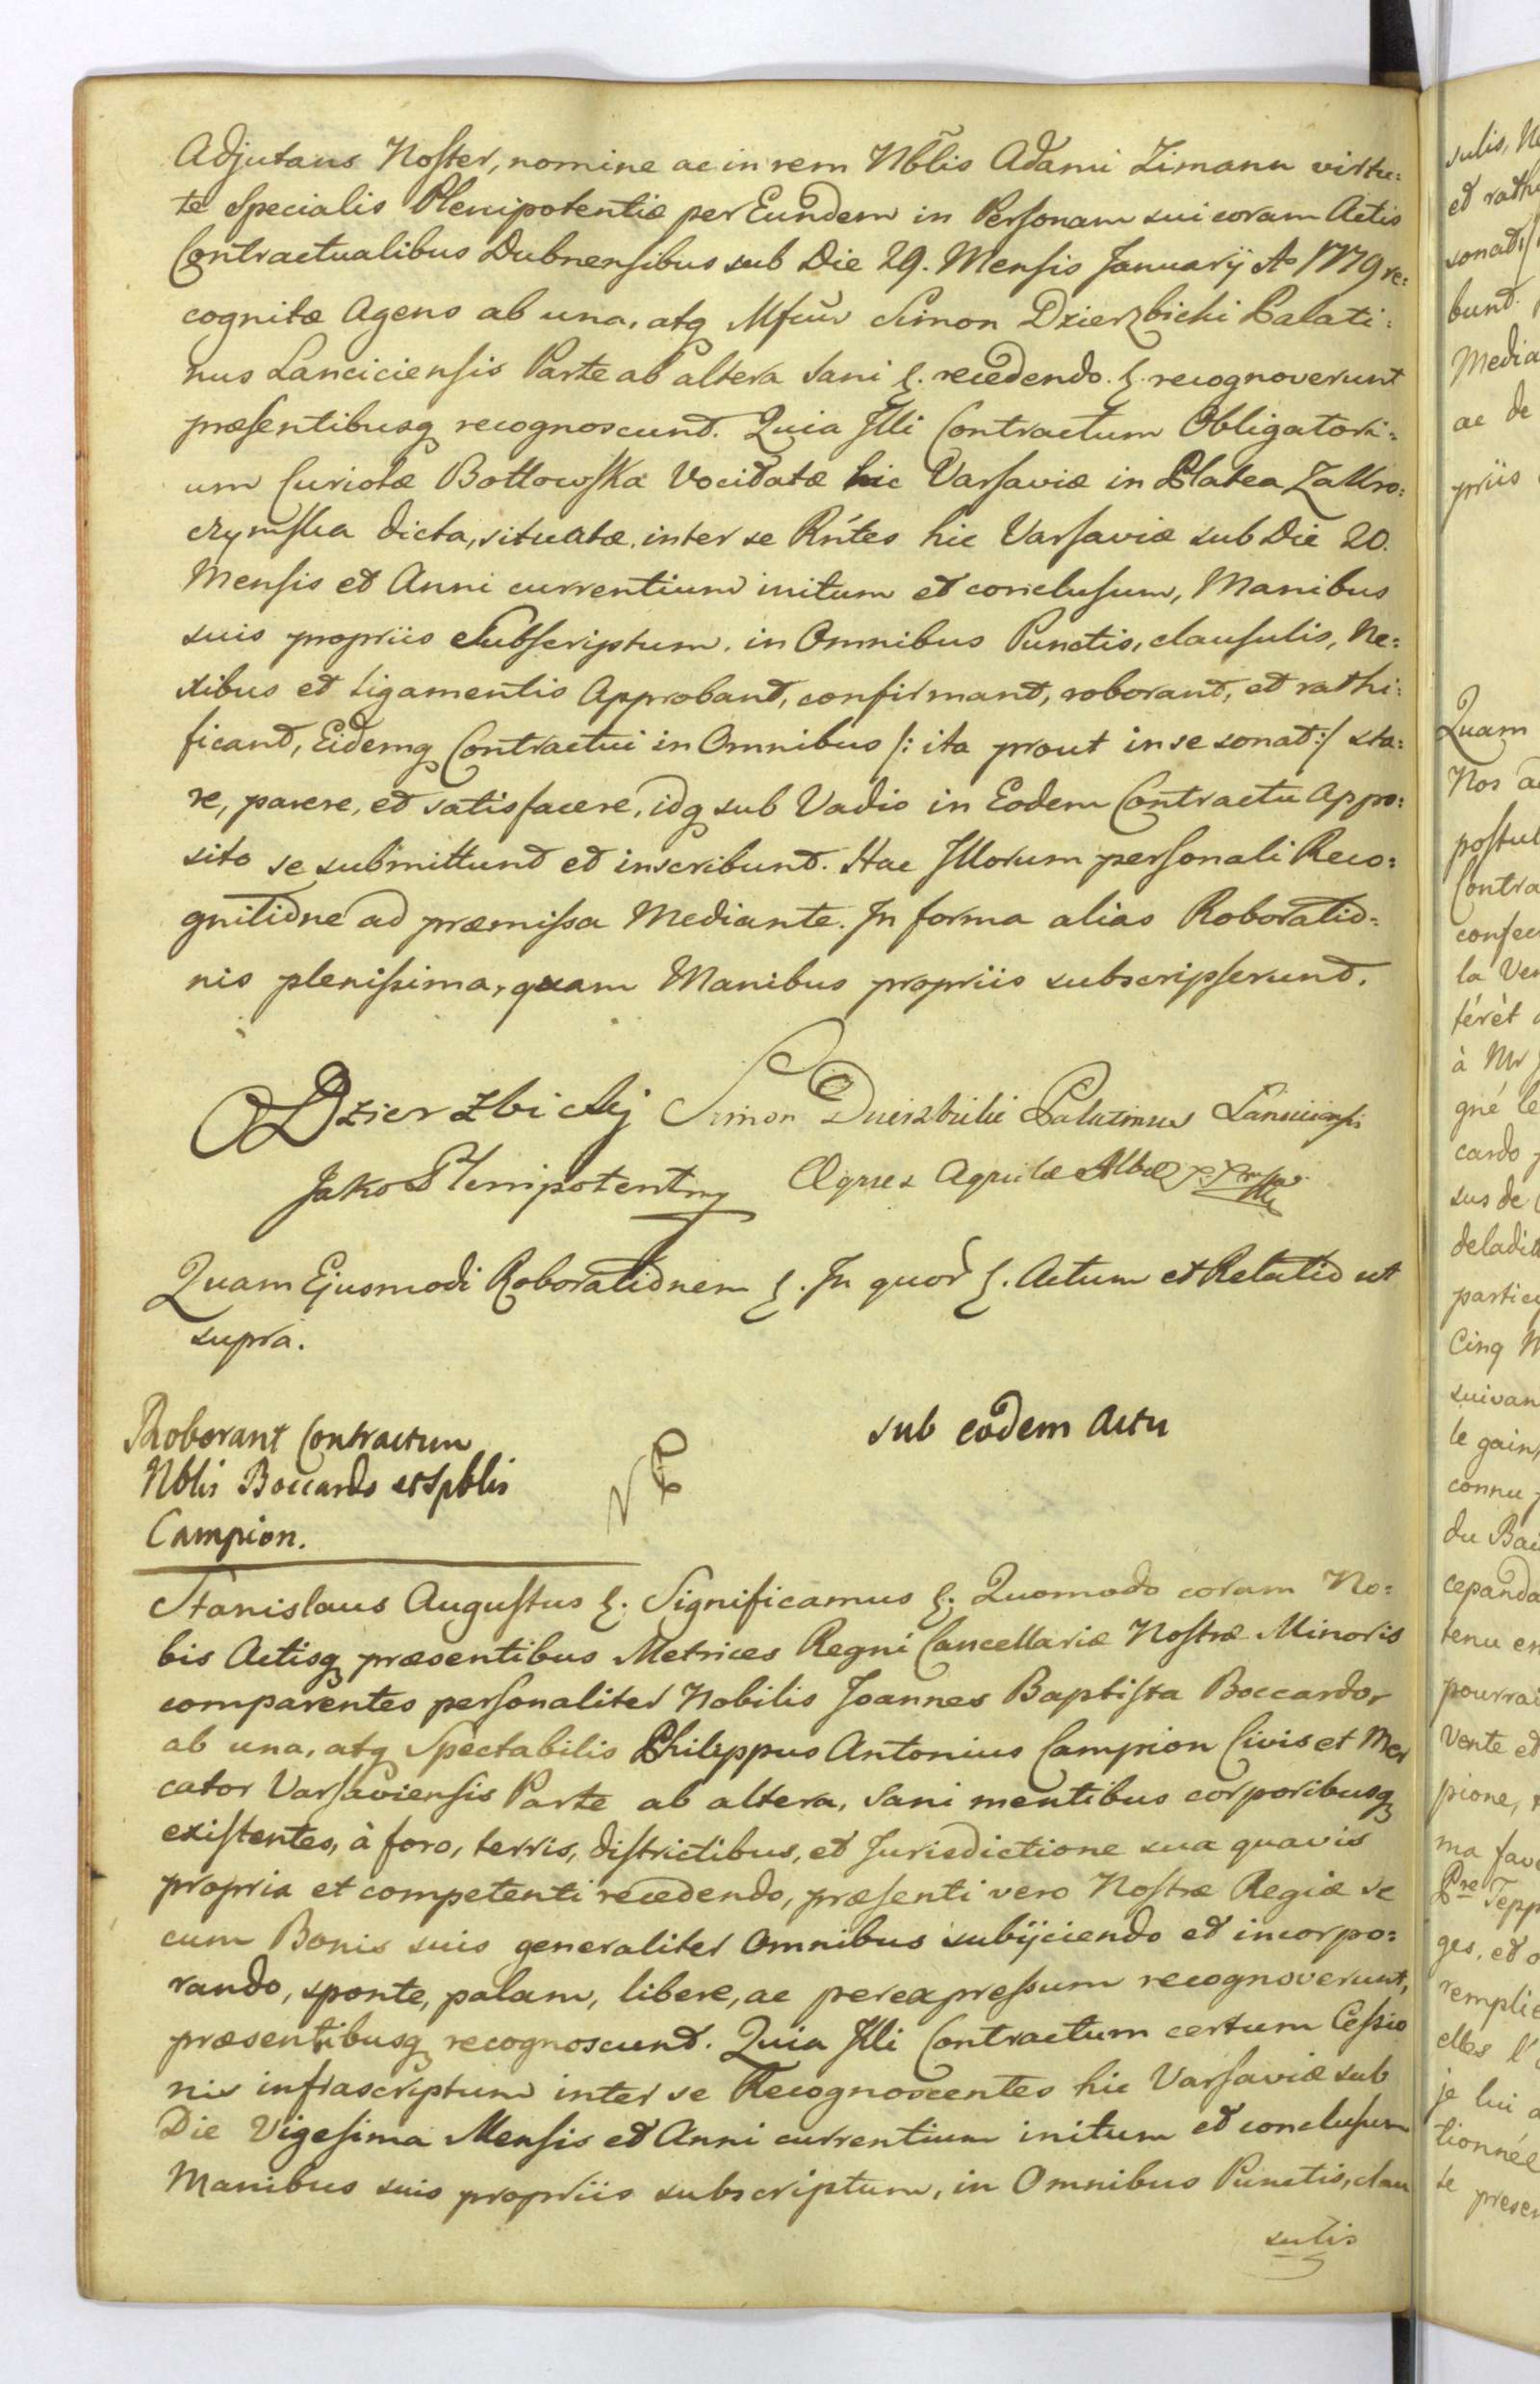 Adjutans Noster, nomine ac in rem Nblis Adami Zimann virtu:
te Specialis Plenipotentiæ per Eundem in Personam sui coram Actis
Contractualibus Dubnensibus sub Die 29. Mensis Januarij Ao 1779 re:
cognitæ Agens ab una, atq Mfcus Simon Dzierzbicki Palati:
nus Lanciciensis Parte ab altera Sani &. recedendo. &. recognoverunt
præsentibusq recognoscunt. Quia Illi Contractum Obligatori:
um Curiolæ Bottowska Vocitatæ hic Varsaviæ in Platea Zakro:
czymska dicta, situatæ, inter se Rntes hic Varsaviæ sub Die 20.
Mensis et Anni currentium initum et conclusum, Manibus
suis propriis Subscriptum, in Omnibus Punctis, clausulis, Ne:
xibus et Ligamentis Approbant, confirmant, roborant, et rathi:
ficant, Eidemq Contractui in Omnibus /: ita prout in se sonat :/ sta:
re, parere, et satisfacere, idq sub Vadio in Eodem Contractu Appo:
sito se submittunt et inscribunt. Hac Illorum personali Reco:
gnitione ad præmissa Mediante. In forma alias Roboratio:
nis plenissima, quam Manibus propriis subscripserunt.
Dzierzbicky Simon Dzierzbicki Palatinus Lanciciensis
Jako Plenipotentny Eques Aquilæ Albæ
Quam Ejusmodi Roborationem &. In quor &. Actum et Relatio ut
supra.
Roborant Contractum
Nblis Boccardo et Spblis
Campion.
sub eodem Actu
Stanislaus Augustus &. Significamus &. Quomodo coram No:
bis Actisq præsentibus Metrices Regni Cancellariæ Nostræ Minoris
comparentes personaliter Nobilis Joannes Baptista Boccardo,
ab una, atq Spectabilis Philippus Antonius Campion Civis et Mer
cator Varsaviensis Parte ab altera, Sani mentibus corporibusq
existentes, à foro, terris, districtibus, et Jurisdictione sua quavis
propria et competenti recedendo, præsenti vero Nostræ Regiæ se
cum Bonis suis generaliter Omnibus subijciendo et incorpo:
rando, sponte, palam, libere, ac per expressum recognoverunt,
præsentibusq recognoscunt. Quia Illi Contractum certum Cessio
nis infrascriptum inter se Recognoscentes hic Varsaviæ sub
Die Vigesima Mensis et Anni currentium initum et conclusum
Manibus suis propriis subscriptum, in Omnibus Punctis, clau
sulis